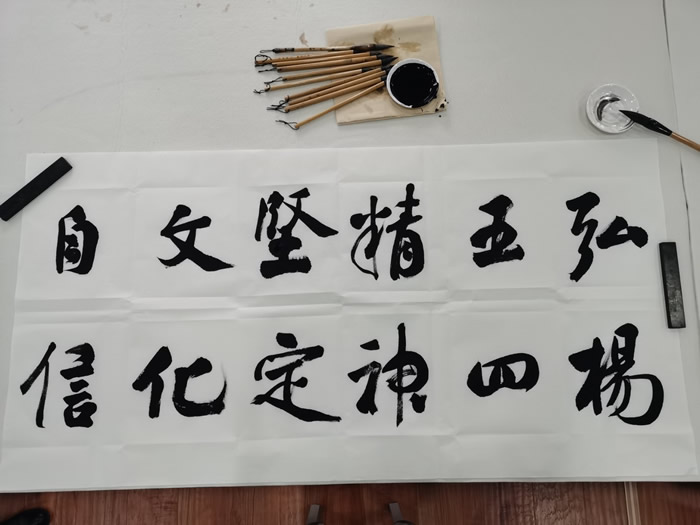 弘楊
五四
精神
堅定
文化
自信